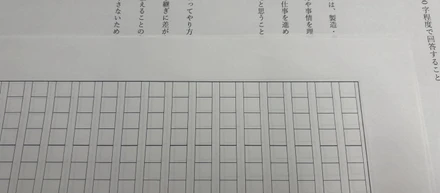 字程度で回答すること
は、製造・
や事情を理
仕事を進め
と思うこと
ってやり方
継ぎに差が
えることの
さないため